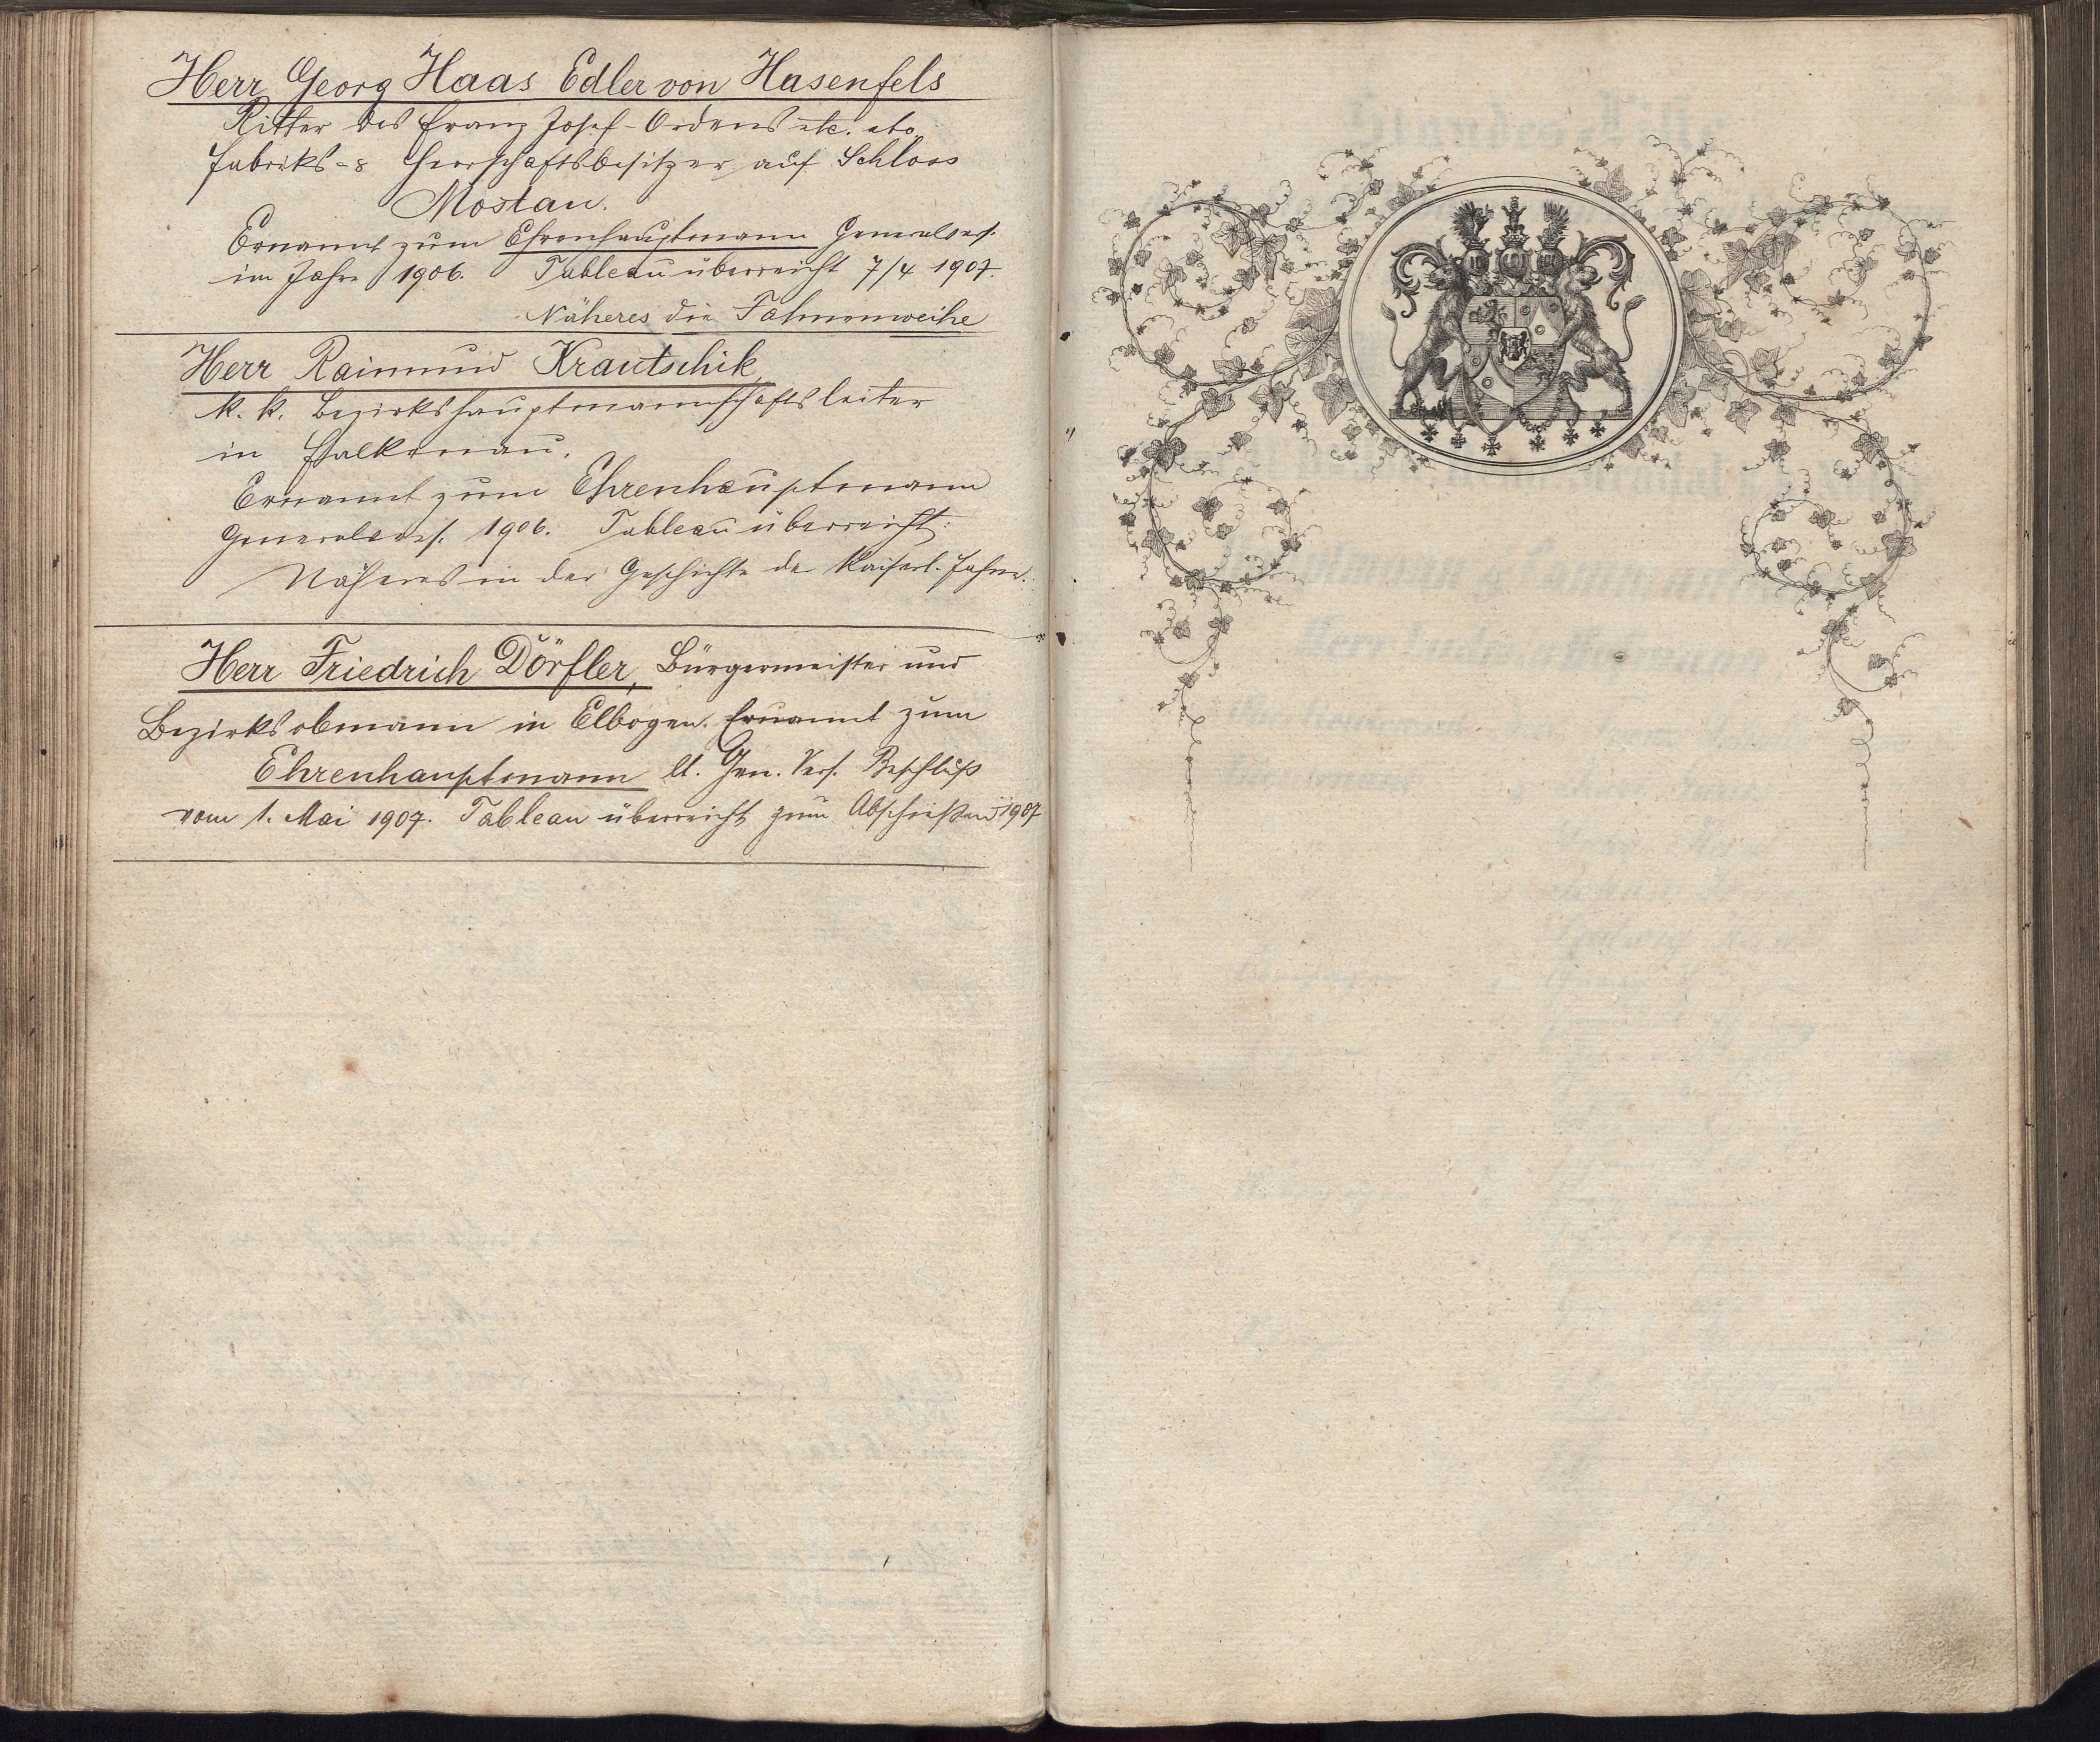 Herr Georg Haas Edler von Hasenfels
Ritter des Franz Josef-Ordens etc. etc.
Fabriks- & Herrschaftsbesitzer auf Schloss
Mostau.
Ernannt zum Ehrenhauptmann Generalvers.
im Jahre 1906. Tableau überreicht 7/4 1907.
Näheres die Fahnenweihe
Herr Raimund Krautschik
k. k. Bezirkshauptmannschaftsleiter
in Falkenau.
Ernannt zum Ehrenhauptmann
Generalvers. 1906. Tableau überreicht.
Näheres in der Geschichte der Kaiserl. Fahne.
Herr Friedrich Dörfler, Bürgermeister und
Bezirksobmann in Elbogen. Ernannt zum
Ehrenhauptmann lt. Gen. Vers. Beschluß
vom 1. Mai 1907. Tableau überreicht zum Abschießen 1907